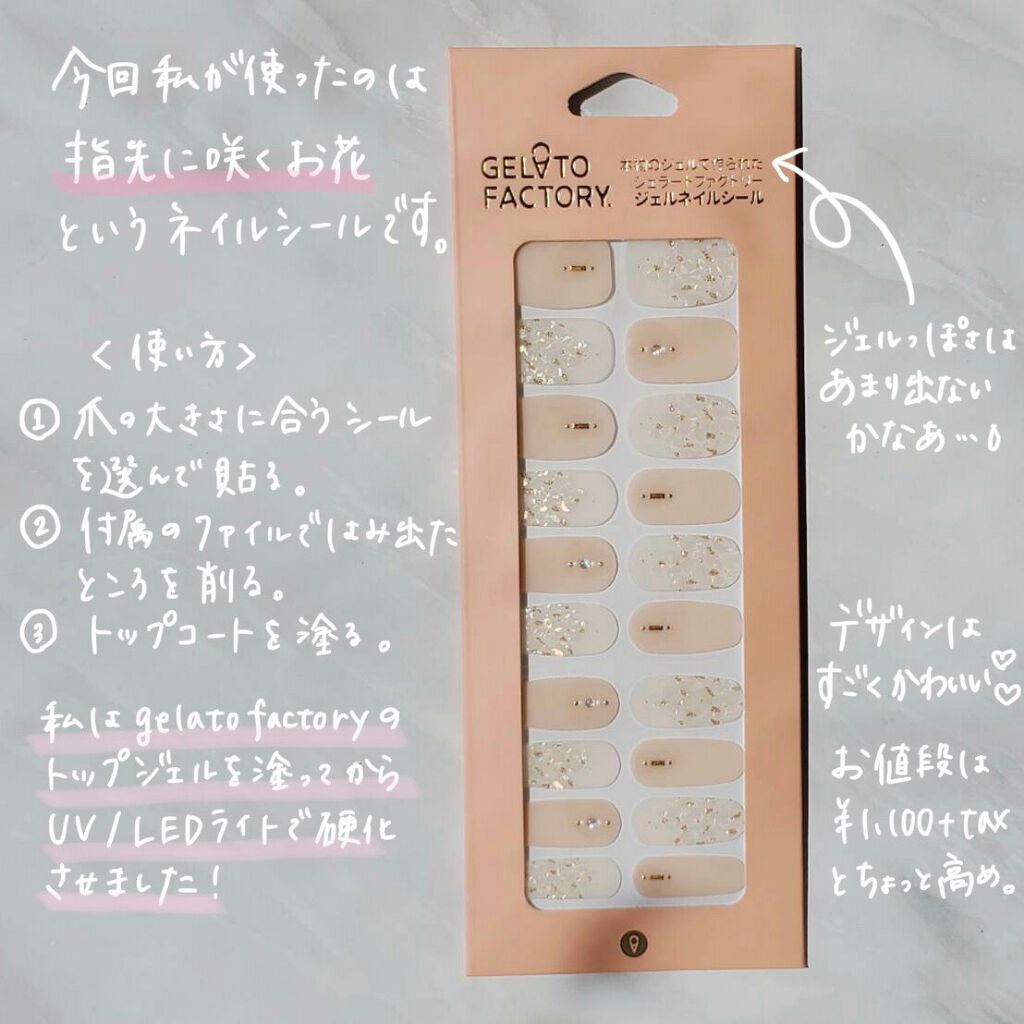 今回私が使ったのは
指先に咲くお花
というネイルシールです。
<使い方>
① 爪の大きさに合うシール
を選んで貼る。
② 付属のファイルではみ出た
ところを削る。
③ トップコートを塗る。
私はgelato factoryの
トップジェルを塗ってから
UV/LEDライトで硬化
させました!
GELATO
FACTORY.
本物のジェルで作られた
ジェラートファクトリー
ジェルネイルシール
ジェルっぽさは
あまり出ない
かなあ…
デザインは
すごくかわいい♡♡
お値段は
¥1,100+tax
とちょっと高め。